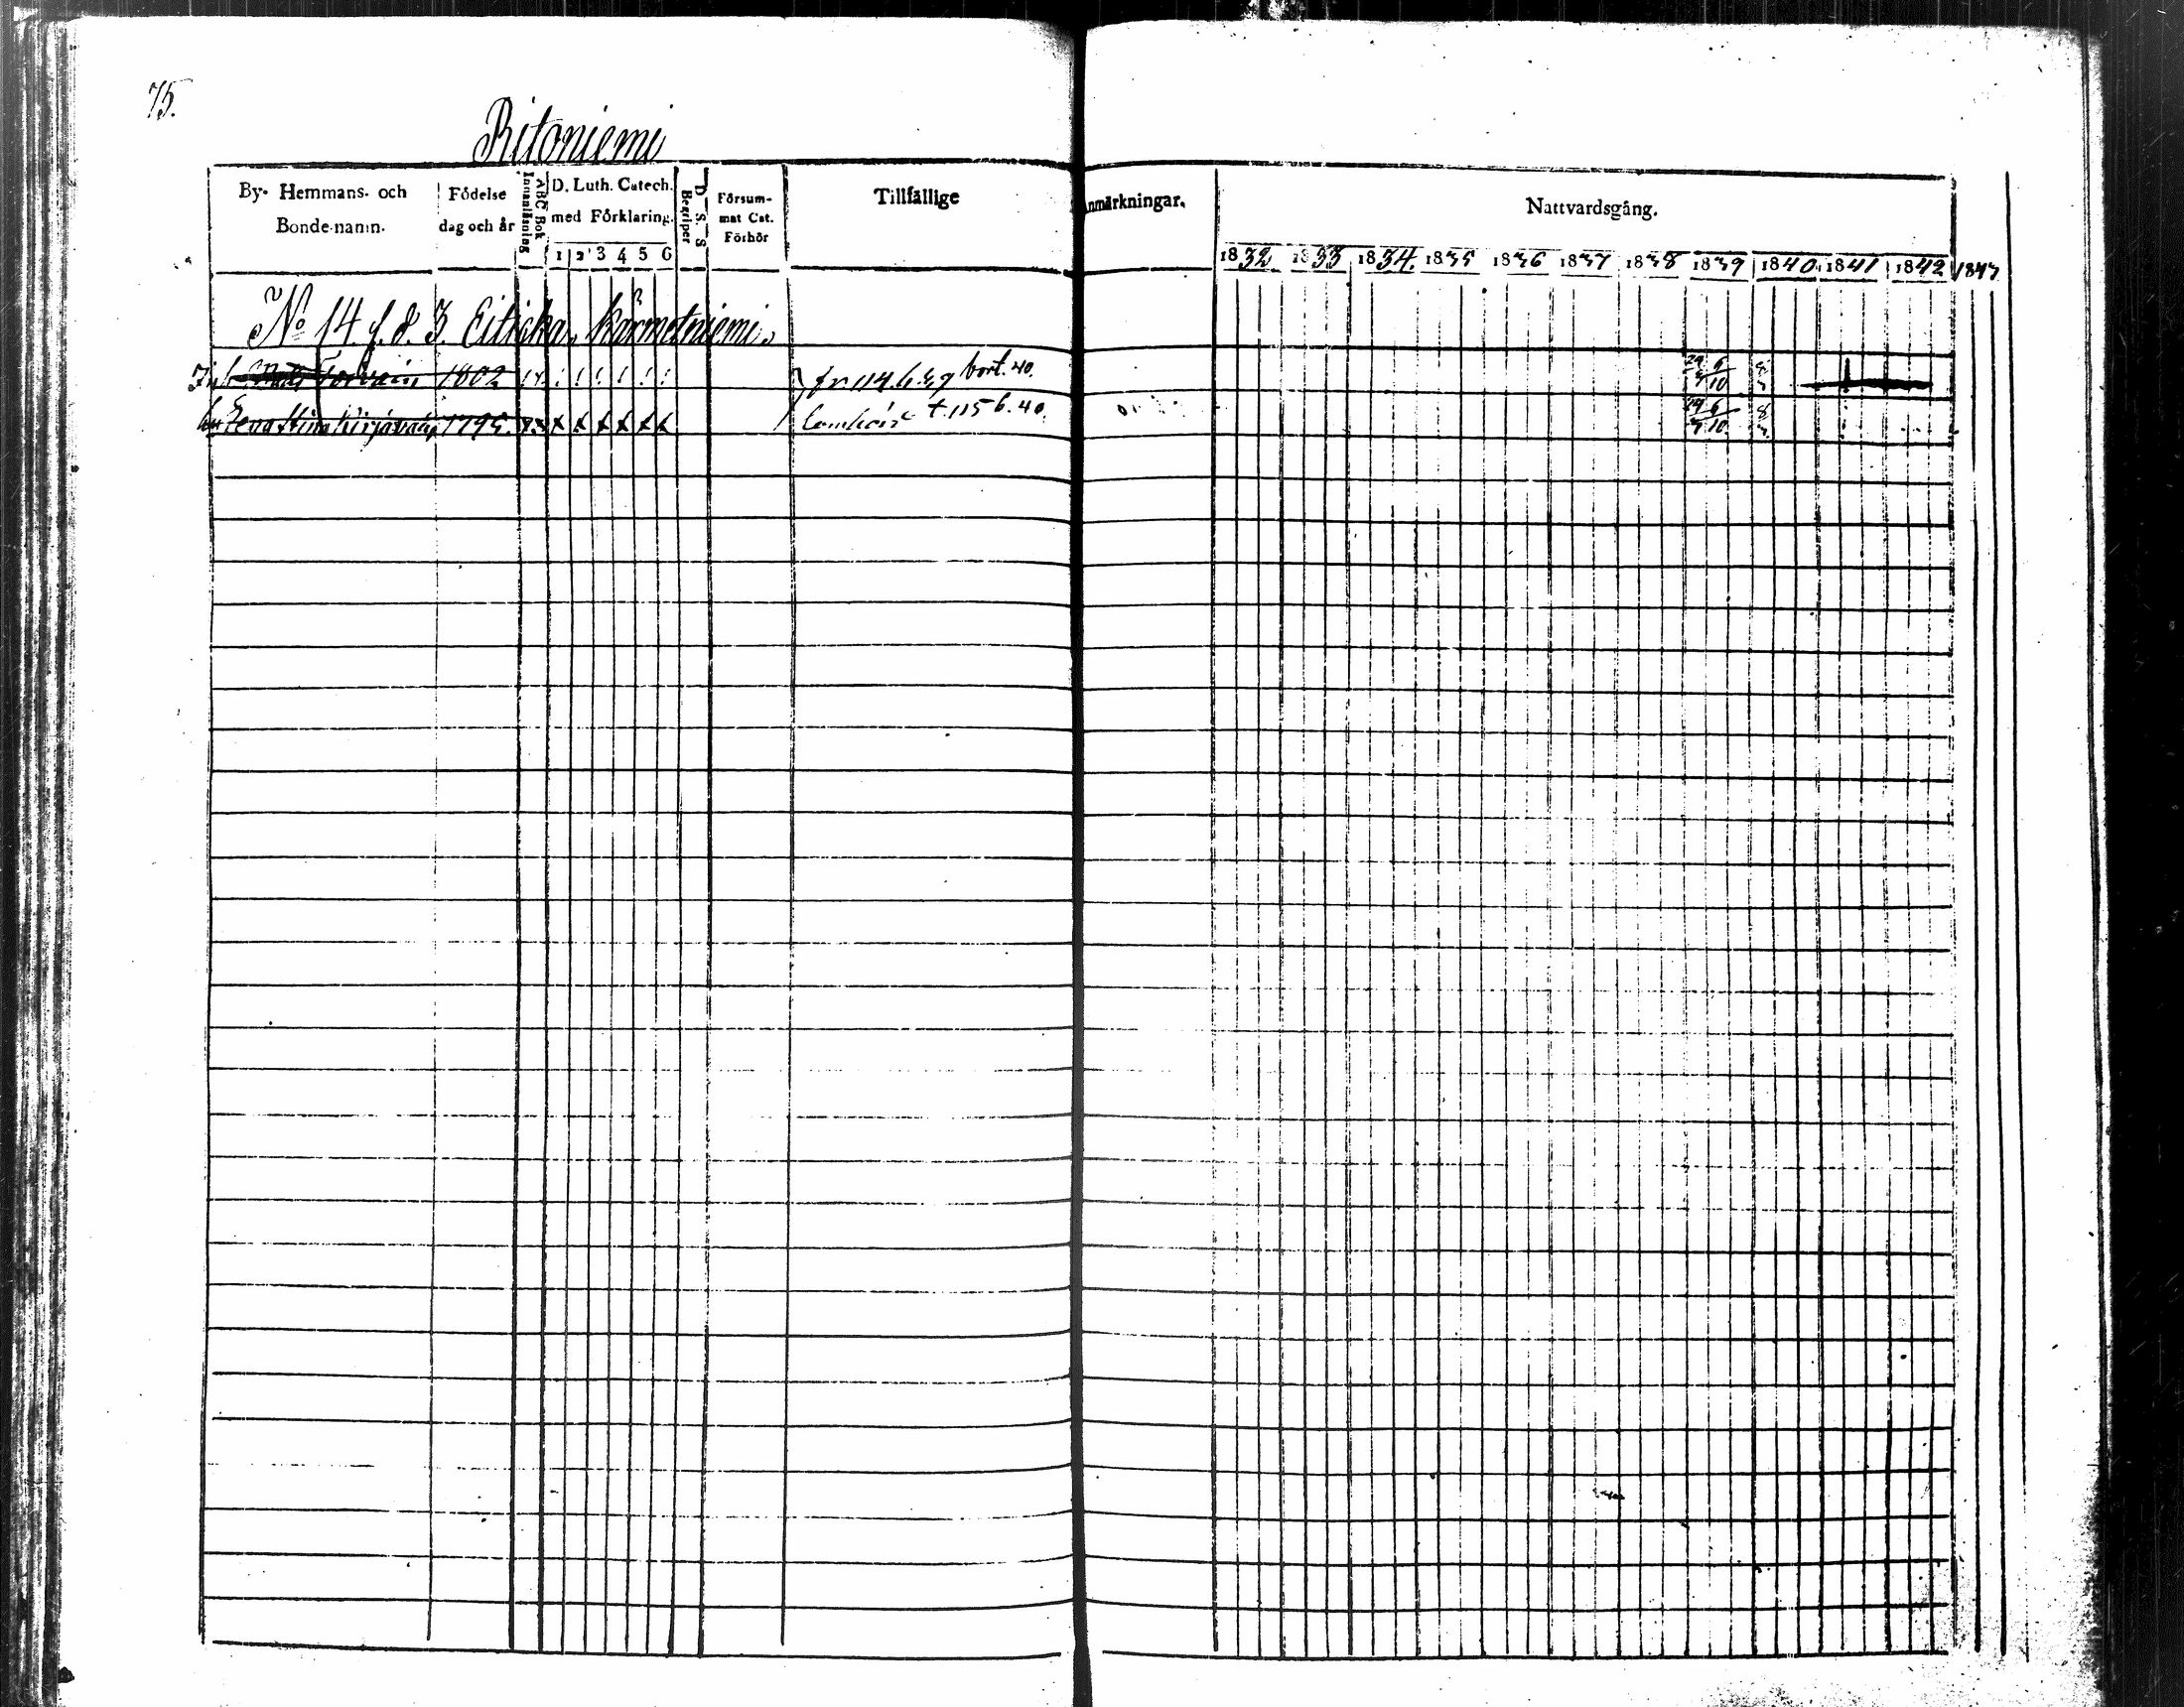 75.
Ritoniemi
By- Hemmans- och Bonde-namn.
Födelse dag och år
ABC Bok Innanläsning
D. Luth. Catech. med Förklaring.
1 2 3 4 5 6
D. S. S Begriper
Försum- mat Cat. Förhör
Tillfällige Anmärkningar.
Nattvardsgång.
1832 1833 1834. 1835 1836 1837 1838 1839 1840 1841 1842 1843
No 14 f. d. 3. Kärmetniemi.
Inh. Torvain 1802 fr 114 b. 39 bort. 40.
hu Lena Stina Kirjavain 1795. † 115 b. 40.